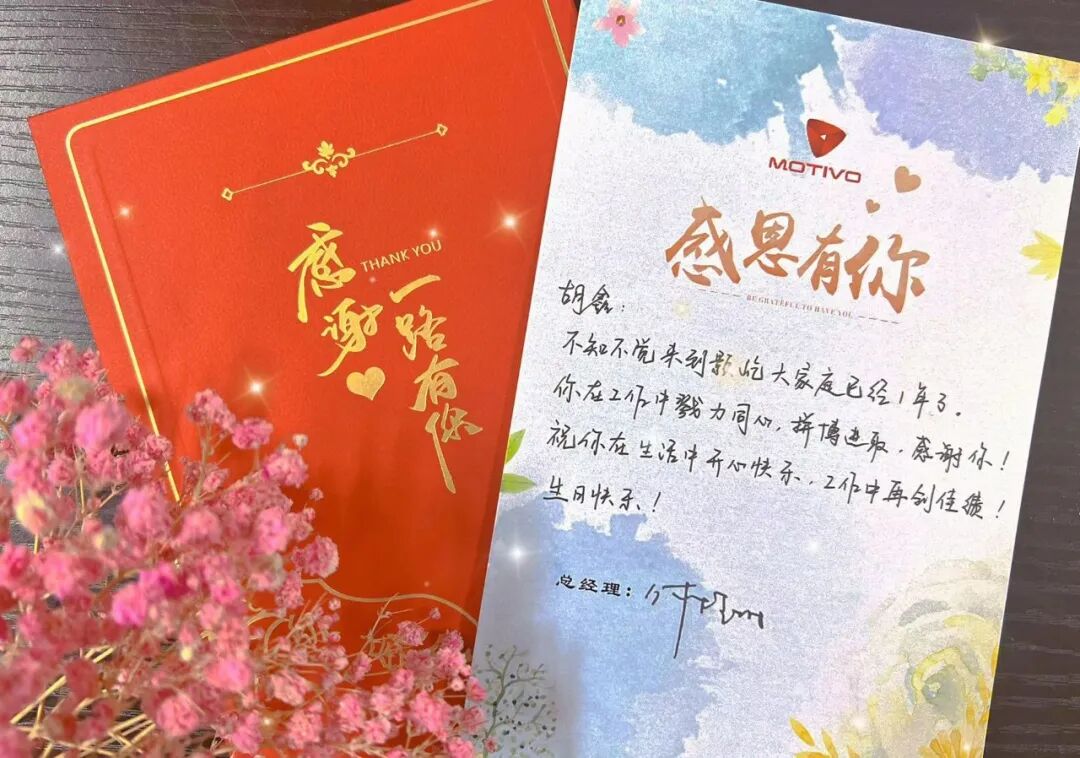 感谢
THANK YOU
一路有你
MOTIVO
感恩有你
BE GRATEFUL TO HAVE YOU
胡鑫：
不知不觉来到影屹大家庭已经1年了。
你在工作中戮力同心，拼博进取，感谢你！
祝你在生活中开心快乐，工作中再创佳绩！
生日快乐！
总经理：